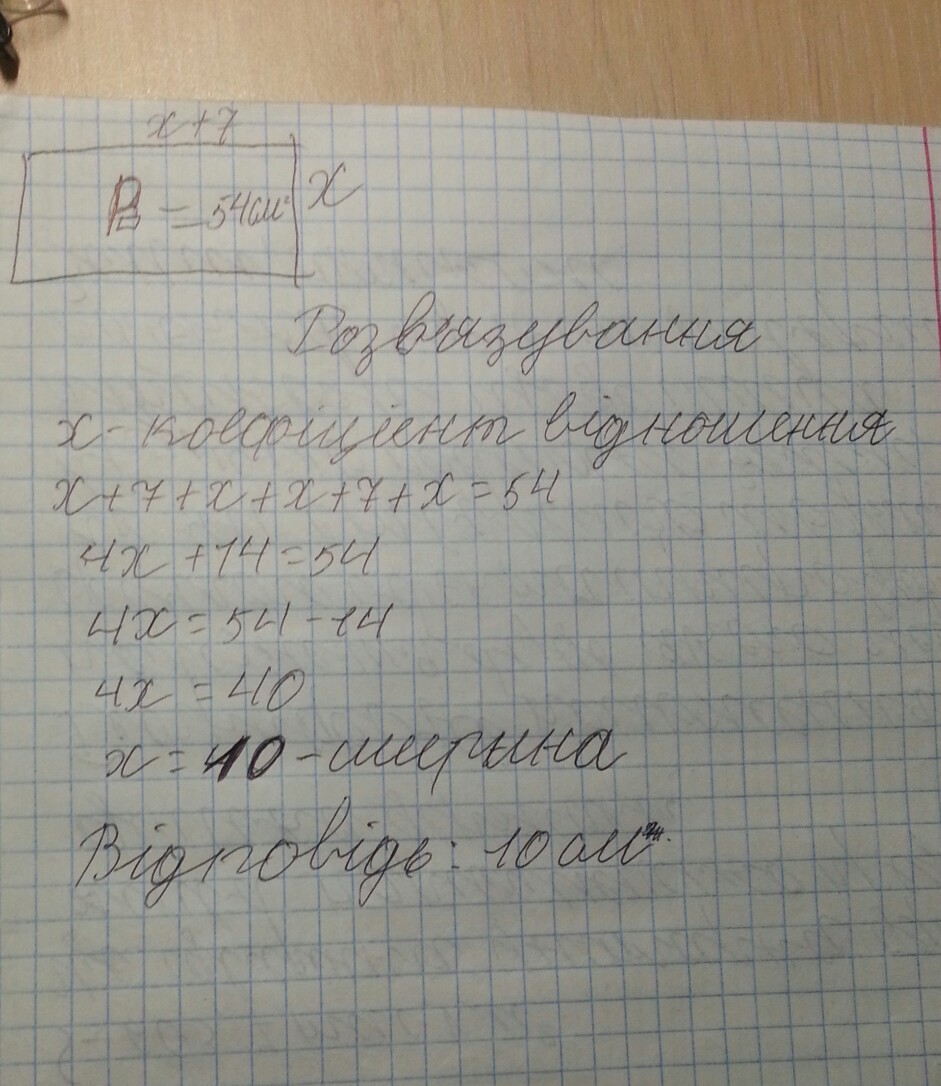 x+7
P = 54см² x
Розвязування
x - коефіцієнт відношення
x+7+x+x+7+x=54
4x+14=54
4x=54-14
4x=40
x=10 - ширина
Відповідь: 10 см.